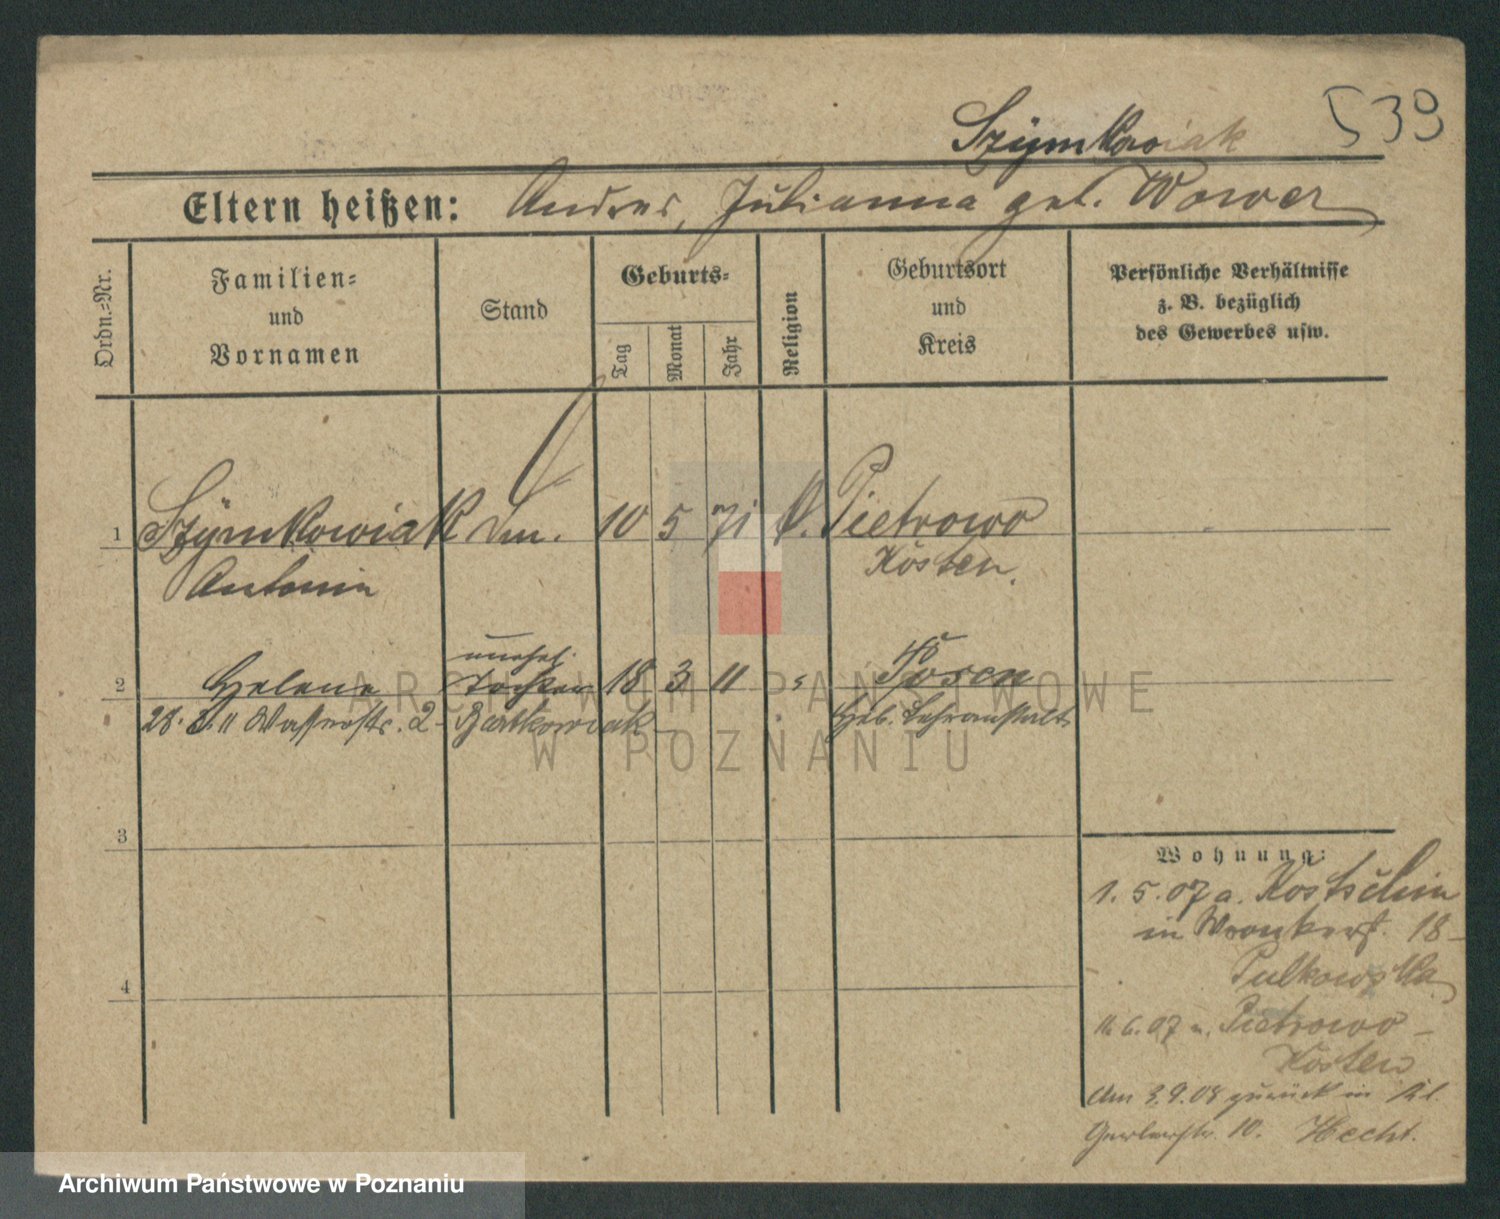 539
Szymkowiak
Eltern heißen: Andreas, Julianna geb. Wower
Ordn.=Nr.
Familien=
und
Vornamen
Stand
Geburts=
Tag
Monat
Jahr
Religion
Geburtsort
und
Kreis
Persönliche Verhältnisse
z. B. bezüglich
des Gewerbes usw.
1 Szymkowiak 10 5 71 k. Pietrowo
Antonie Kosten.
unehel.
2 Helene Tochter 18 3 11 " Posen
28. 3. 11 Wasserstr. 2 - Bartkowiak - Heb. Lehranstalt
3
4
Wohnung:
1. 5. 07 a. Kostschin
in Wronkerstr. 18 -
Pulkowska
11. 6. 07 n. Pietrowo -
Kosten
Am 3. 9. 08 zurück in
Gerberstr. 10. Hecht.
ARCHIWUM PAŃSTWOWE
W POZNANIU
Archiwum Państwowe w Poznaniu